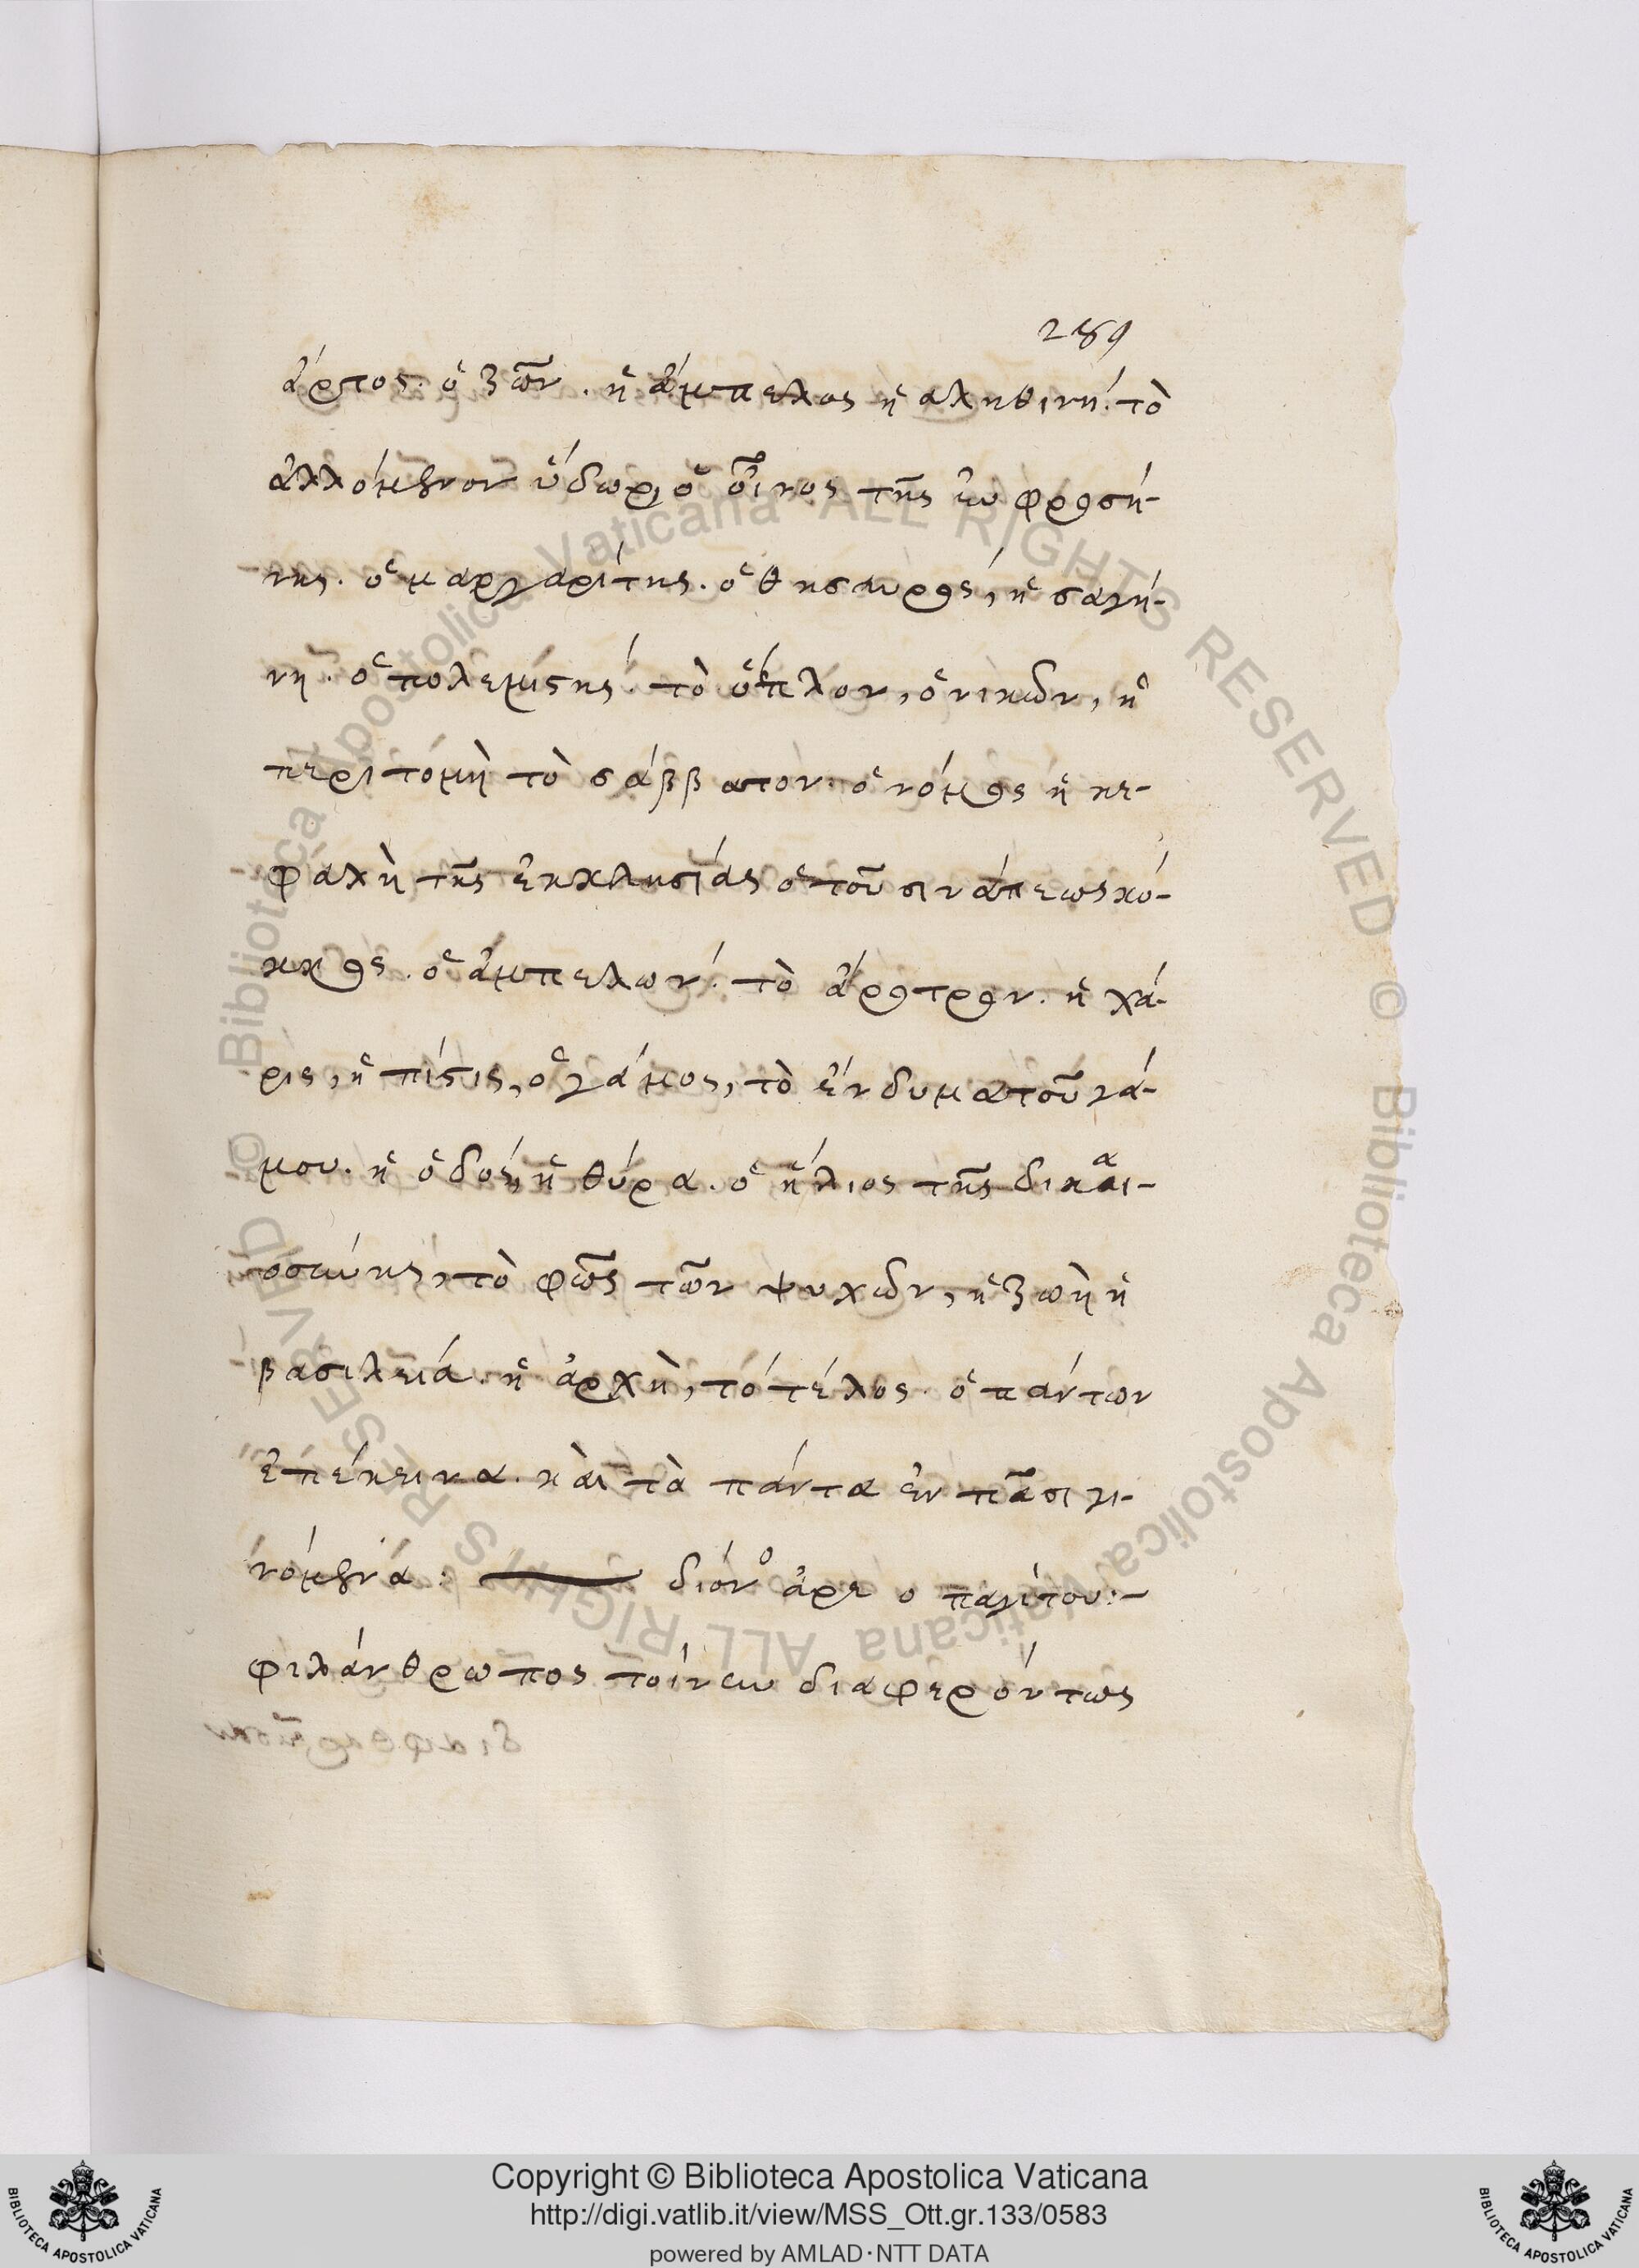 289
ἄρτος ὁ ζῶν. ἡ ἄμπελος ἡ αληθινή. τὸ
ἁλλόμενον ὕδωρ, ὁ οἶνος τῆς ἐυφροσύ-
νης. ὁ μαργαρίτης. ὁ θησαυρός, ἡ σαγή-
νη. ὁ πολεμίστης. τὸ ὅπλον, ὁ νικῶν, ἡ
περιτομὴ τὸ σάββατον. ὁ νόμος ἡ κε-
φαλὴ τῆς ἐκκλησίας ὁ τοῦ σινάπεως κό-
κκος. ὁ ἀμπελων. τὸ ἄροτρον. ἡ χά-
ρις, ἡ πίστις, ὁ γάμος, τὸ ἔνδυμα τοῦ γά-
μου. ἡ ὁδός, ἡ θύρα. ὁ ἥλιος τῆς δικαι-
οσύνης, τὸ φῶς τῶν ψυχῶν, ἡ ζωὴ ἡ
βασιλεία. ἡ ἀρχὴ, τό τέλος. ὁ πάντων
ἐπέκεινα. κὰι τὰ πάντα ἐν πᾶσι γι-
νόμενα: διόνο ἀρε ο παγίτου:-
φιλάνθρωπος τοίνυν διαφερόντως
Copyright © Biblioteca Apostolica Vaticana
http://digi.vatlib.it/view/MSS_Ott.gr.133/0583
powered by AMLAD·NTT DATA
BIBLIOTECA APOSTOLICA VATICANA
BIBLIOTECA APOSTOLICA VATICANA
© Biblioteca Apostolica Vaticana ALL RIGHTS RESERVED © Biblioteca Apostolica Vaticana ALL RIGHTS RESERVED